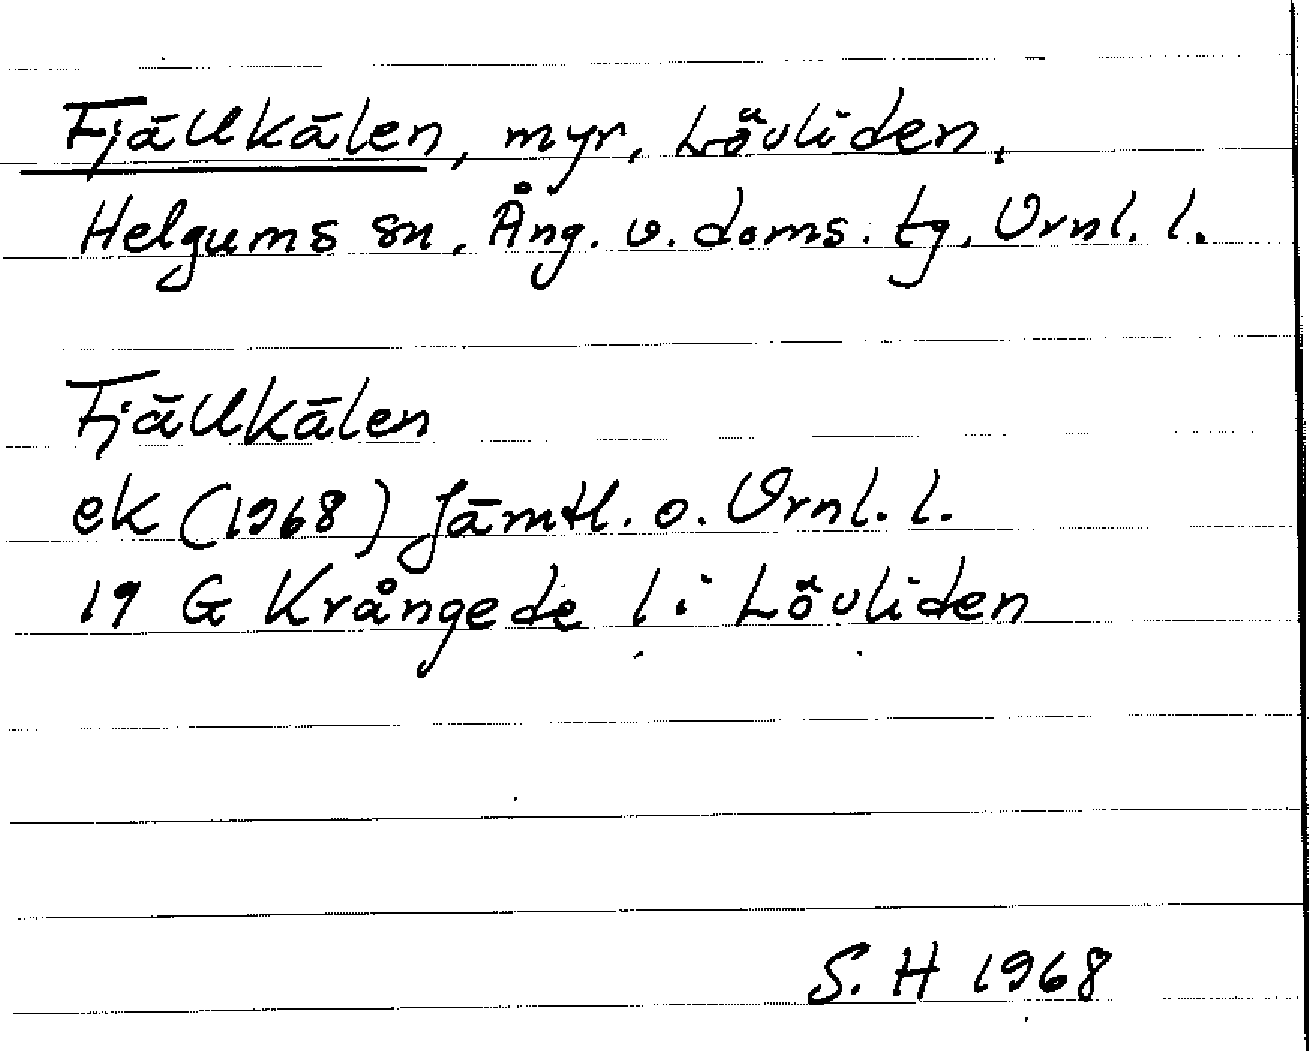 Fjällkälen, myr, Lövliden,
Helgums sn, Ång. v. doms. tg, Vrnl. l.
Fjällkälen
ek (1968) Jämtl. o. Vrnl. l.
19 G Krångede l i Lövliden
S. H 1968